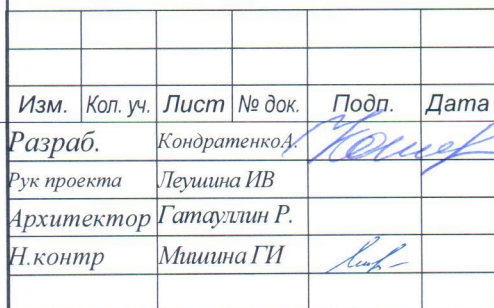 Изм. Кол. уч. Лист № док. Подп. Дата
Разраб. КондратенкоА.
Рук проекта Леушина ИВ
Архитектор Гатауллин Р.
Н.контр Мишина ГИ